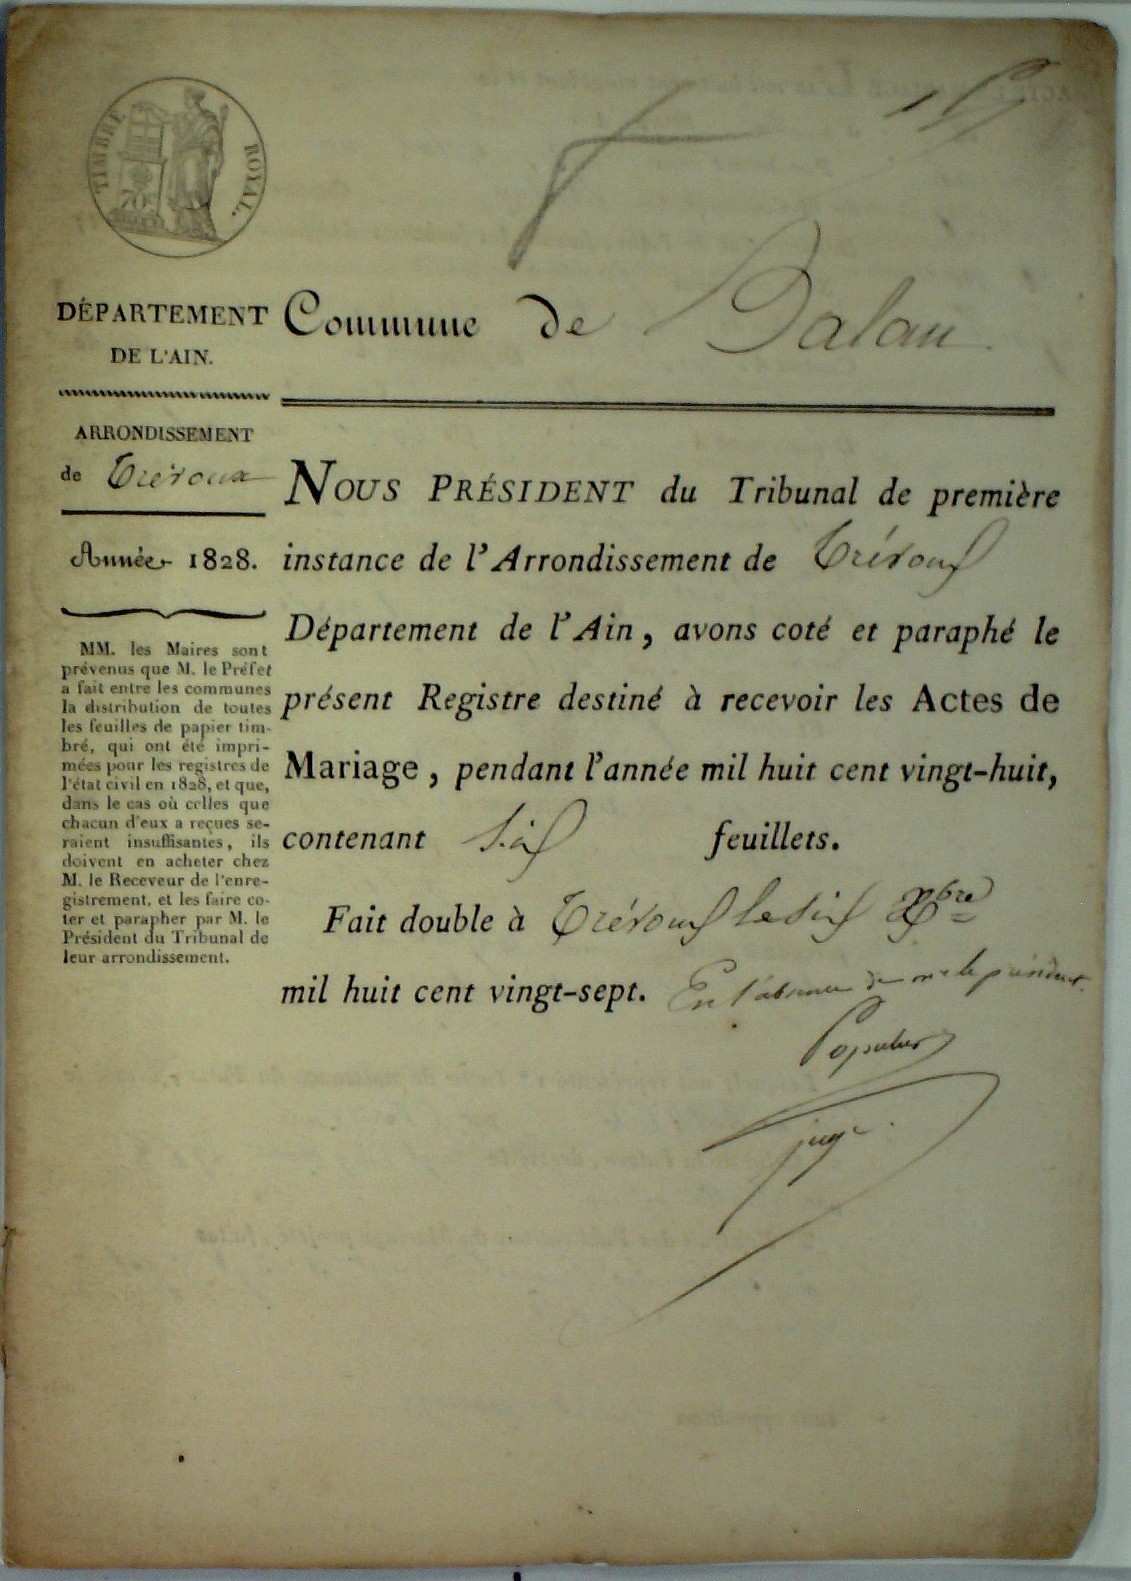 TIMBRE ROYAL.
70.
DÉPARTEMENT
DE L'AIN.
ARRONDISSEMENT
de Trévoux
Année 1828.
MM. les Maires sont
prévenus que M. le Préfet
a fait entre les communes
la distribution de toutes
les feuilles de papier tim-
bré, qui ont été impri-
mées pour les registres de
l'état civil en 1828, et que,
dans le cas où celles que
chacun d'eux a reçues se-
raient insuffisantes, ils
doivent en acheter chez
M. le Receveur de l'enre-
gistrement, et les faire co-
ter et parapher par M. le
Président du Tribunal de
leur arrondissement.
Commune de Balan
NOUS PRÉSIDENT du Tribunal de première
instance de l'Arrondissement de Trévoux
Département de l'Ain, avons coté et paraphé le
présent Registre destiné à recevoir les Actes de
Mariage, pendant l'année mil huit cent vingt-huit,
contenant Six feuillets.
Fait double à Trévoux le Six Xbre
mil huit cent vingt-sept. En l'absence de mr le président
juge.